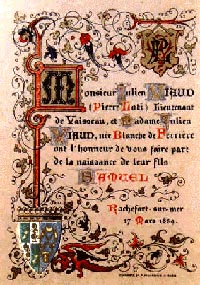 Monsieur Julien VIAUD
(Pierre Loti) Lieutenant
de Vaisseau, et Madame Julien
VIAUD, née Blanche de Ferrière
ont l'honneur de vous faire part
de la naissance de leur fils
SAMUEL
Rochefort-sur-mer
17 Mars 1889.